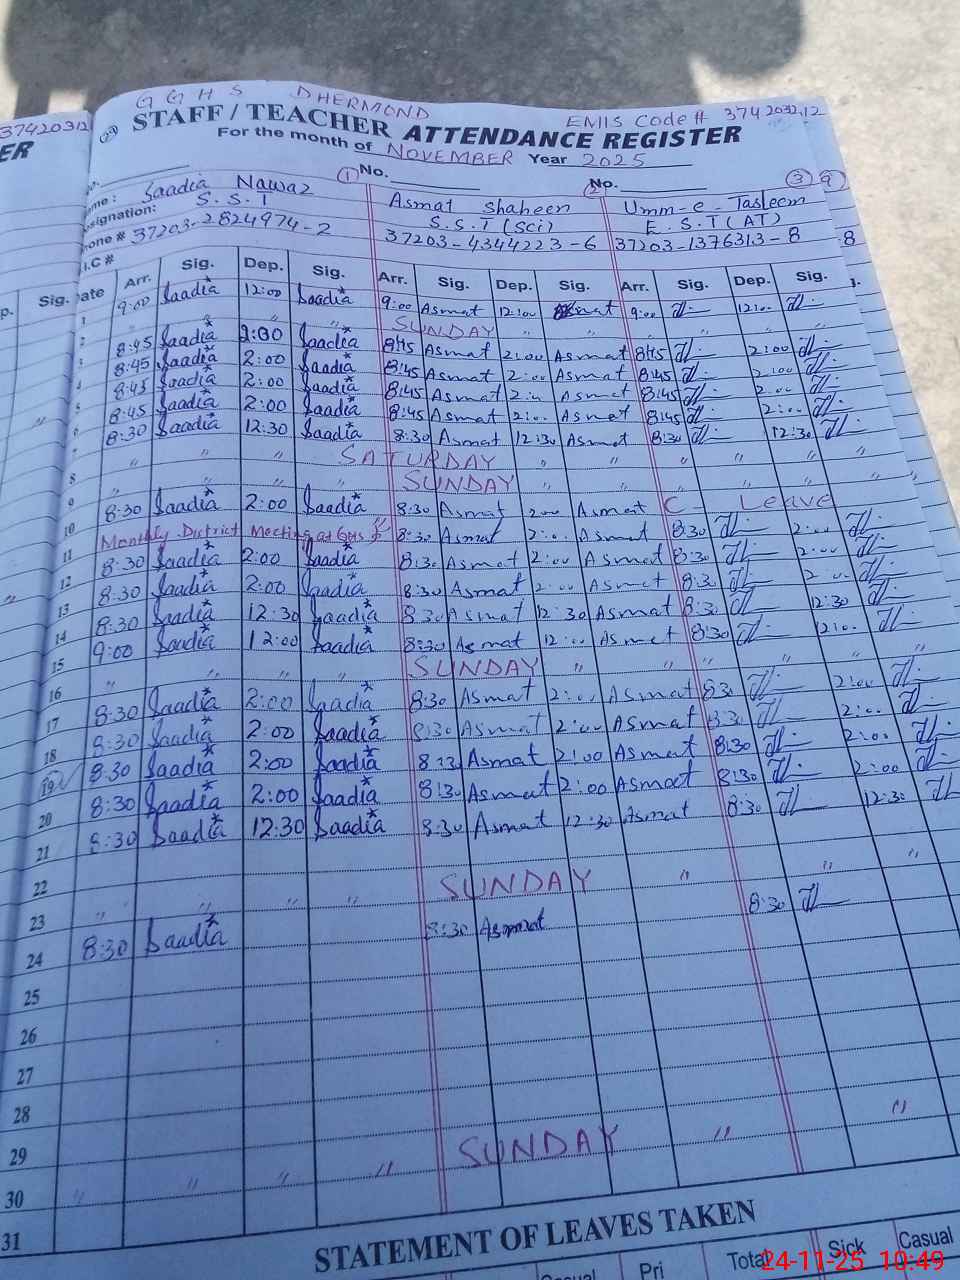 GGHS DHERMOND EMIS Code # 37420312,12
STAFF / TEACHER ATTENDANCE REGISTER
For the month of NOVEMBER Year 2025
37420312
ER
No. (1) No. (2) (3) 9
Name : Saadia Nawaz Asmat Shaheen Umm-e-Tasleem
Designation: S.S.T S.S.T (Sci) E.S.T (AT)
Phone # 37203-2824974-2 37203-4344223-6 37203-1376313-8 8
N.I.C #
p. Sig. Date Arr. Sig. Dep. Sig. Arr. Sig. Dep. Sig. Arr. Sig. Dep. Sig.
1 9:00 Saadia 12:00 Saadia 9:00 Asmat 12:00 Asmat 9:00 12:00
2 " " " SUNDAY " " " "
3 8:45 Saadia 2:00 Saadia 8:45 Asmat 2:00 Asmat 8:45 2:00
4 8:45 Saadia 2:00 Saadia 8:45 Asmat 2:00 Asmat 8:45 2:00
5 8:45 Saadia 2:00 Saadia 8:45 Asmat 2:00 Asmat 8:45 2:00
6 8:45 Saadia 2:00 Saadia 8:45 Asmat 2:00 Asmat 8:45 2:00
7 8:30 Saadia 12:30 Saadia 8:30 Asmat 12:30 Asmat 8:30 12:30
8 " " " SATURDAY " " " " "
9 " " " SUNDAY " " " " "
10 8:30 Saadia 2:00 Saadia 8:30 Asmat 2:00 Asmat C- Leave
11 Monthly District Meeting at 8:30 Asmat 2:00 Asmat 8:30 2:00
12 8:30 Saadia 2:00 Saadia 8:30 Asmat 2:00 Asmat 8:30 2:00
13 8:30 Saadia 2:00 Saadia 8:30 Asmat 2:00 Asmat 8:30 2:00
14 8:30 Saadia 12:30 Saadia 8:30 Asmat 12:30 Asmat 8:30 12:30
15 9:00 Saadia 12:00 Saadia 8:30 Asmat 12:00 Asmat 8:30 12:00
16 " " " " SUNDAY " " " " "
17 8:30 Saadia 2:00 Saadia 8:30 Asmat 2:00 Asmat 8:30 2:00
18 8:30 Saadia 2:00 Saadia 8:30 Asmat 2:00 Asmat 8:30 2:00
19 8:30 Saadia 2:00 Saadia 8:30 Asmat 2:00 Asmat 8:30 2:00
20 8:30 Saadia 2:00 Saadia 8:30 Asmat 2:00 Asmat 8:30 2:00
21 8:30 Saadia 12:30 Saadia 8:30 Asmat 12:30 Asmat 8:30 12:30
22
23 " " " " SUNDAY " " "
24 8:30 Saadia 8:30 Asmat 8:30
25
26
27
28
29
30 " " " " SUNDAY " "
31
STATEMENT OF LEAVES TAKEN
Pri Total Sick Casual
24-11-25 10:49